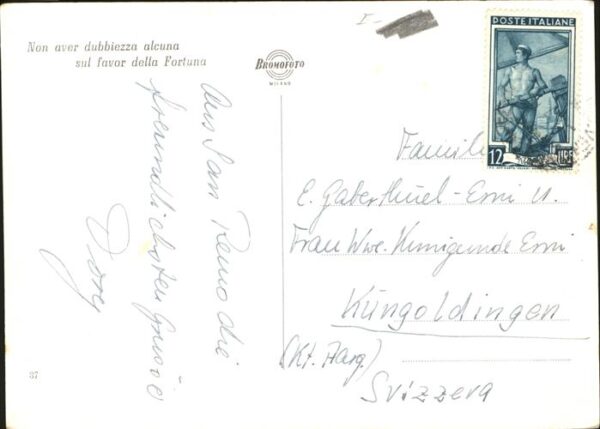 Non aver dubbiezza alcuna
sul favor della Fortuna
BROMOFOTO
MILANO
I-
POSTE ITALIANE
12 LIRE
Aus San Remo die
freundlichsten Grüsse
Familie
E. Gaberthüel-Erni u.
Frau Wwe. Kunigunde Erni
Küngoldingen
(Kt. Aarg.)
Svizzera
87